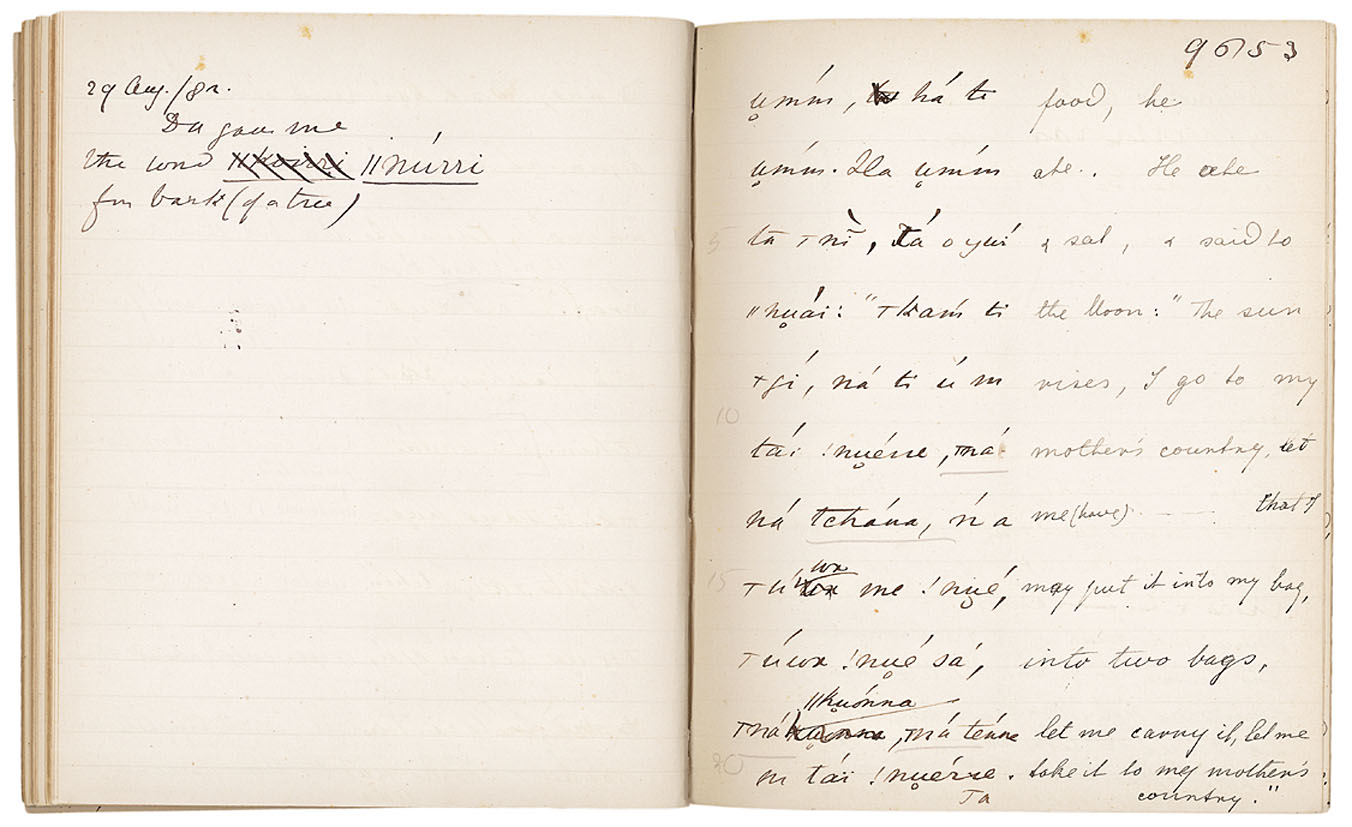 29 Aug./82.
Da gave me
the word ǁnúrri
for bark (of a tree)
9653
ụḿm, há ti food, he
ụḿm. Ha ụḿm ate. He ate
ta & sat, & said to
ǁnụái: " ti the Moon: "The sun
ná ti ú m rises, I go to my
tái !nụérre, mother's country, let
ná tchána, ń a me (have) that I
me !nụé, may put it into my bag,
!nụé sá, into two bags,
ǁkụónna
let me carry it, let me
m tái !nụérre. take it to my mother's
Ta country."
5
10
15
20